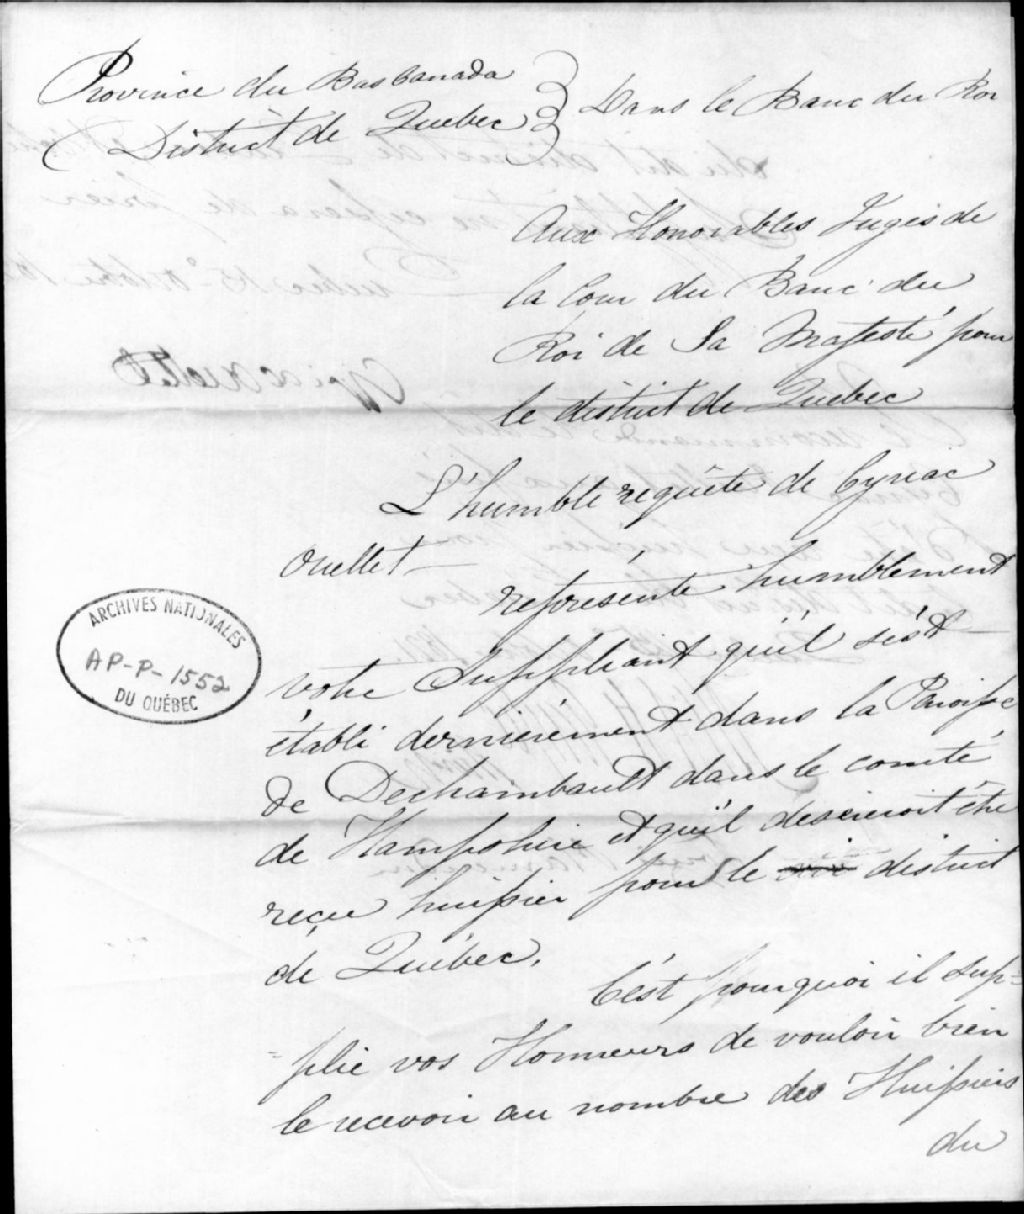 Province du Bas Canada } Dans le Banc du Roi
District de Quebec
Aux Honorables Juges de
la Cour du Banc du
Roi de Sa Majesté pour
le district de Quebec
L'humble requête de Cyriac
Ouellet
représente humblement
votre Suppliant qu'il s'est
établi dernièrement dans la Paroisse
de Dechambault dans le comté
de Hampshire et qu'il desireroit être
reçu huissier pour le district
de Québec.
C'est pourquoi il sup=
=plie vos Honneurs de vouloir bien
le recevoir au nombre des Huissiers
du
ARCHIVES NATIONALES
AP-P-1552
DU QUÉBEC